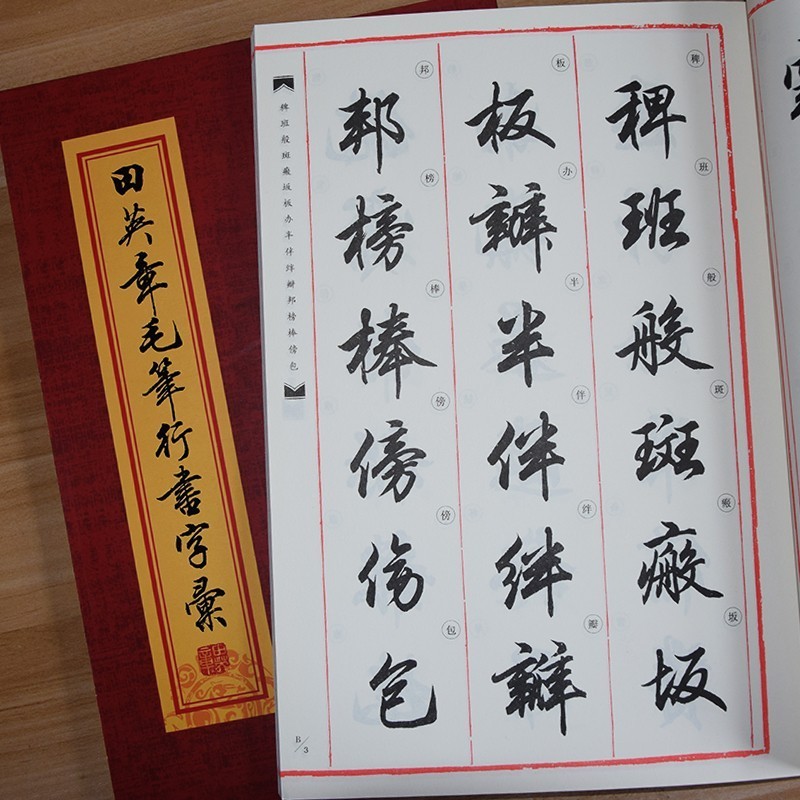 田英章毛筆行書字彙
稗班般斑瘢坂
稗班般斑瘢坂
板办半伴绊瓣
板辦半伴绊瓣
邦榜棒傍傍包
邦榜棒傍傍包
稗班般斑瘢坂板办半伴绊瓣邦榜棒傍包
B/3